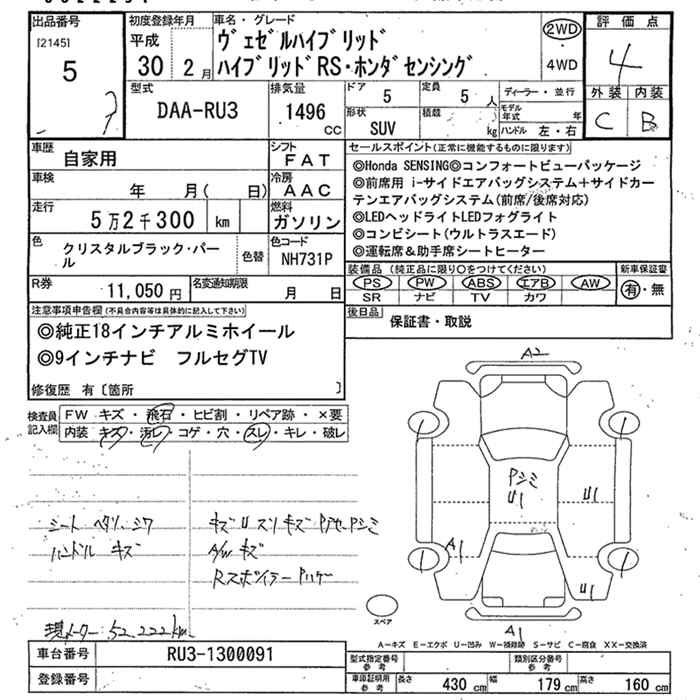 出品番号
[2145]
5
初度登録年月
平成
30 2月
車名・グレード
ヴェゼルハイブリッド
ハイブリッドRS・ホンダセンシング
2WD
・
4WD
評価点
4
外装 内装
C B
型式
DAA-RU3
排気量
1496
cc
ドア 5
定員 5 人
形状
SUV
積載
kg
ディーラー・並行
モデル年式 年
ハンドル 左・右
車歴 自家用
シフト
FAT
車検 年 月( 日)
冷房
AAC
走行 5万2千300 km
燃料
ガソリン
色 クリスタルブラック・パール
色替
色コード
NH731P
R券 11,050円
名変通知期限 月 日
セールスポイント(正常に機能するものに限ります)
◎Honda SENSING◎コンフォートビューパッケージ
◎前席用 i-サイドエアバッグシステム+サイドカー
テンエアバッグシステム(前席/後席対応)
◎LEDヘッドライトLEDフォグライト
◎コンビシート(ウルトラスエード)
◎運転席&助手席シートヒーター
装備品(純正品に限り○をつけてください)
PS PW ABS エアB AW
SR ナビ TV カワ
新車保証書
有・無
後日品 保証書・取説
注意事項申告欄(不具合内容等は具体的に記入して下さい)
◎純正18インチアルミホイール
◎9インチナビ フルセグTV
修復歴 有〔箇所 〕
検査員
記入欄
FW キズ・飛石・ヒビ割・リペア跡・×要
内装 キズ・汚レ・コゲ・穴・スレ・キレ・破レ
シート ヘタリ、シワ
ハンドル キズ
キズUスリキズPゲセ、Pシミ
A/Wキズ
Rスポイラー
現メーター 52,222km
A2
Pシミ
U1
U1
A1
U1
A1
スペア
A-キズ E-エクボ U-凹み W-補修跡 S-サビ C-腐食 XX-交換済
車台番号 RU3-1300091
登録番号
型式指定番号
参考
類別区分番号
参考
車庫証明用
参考
長さ 430 cm
幅 179 cm
高さ 160 cm